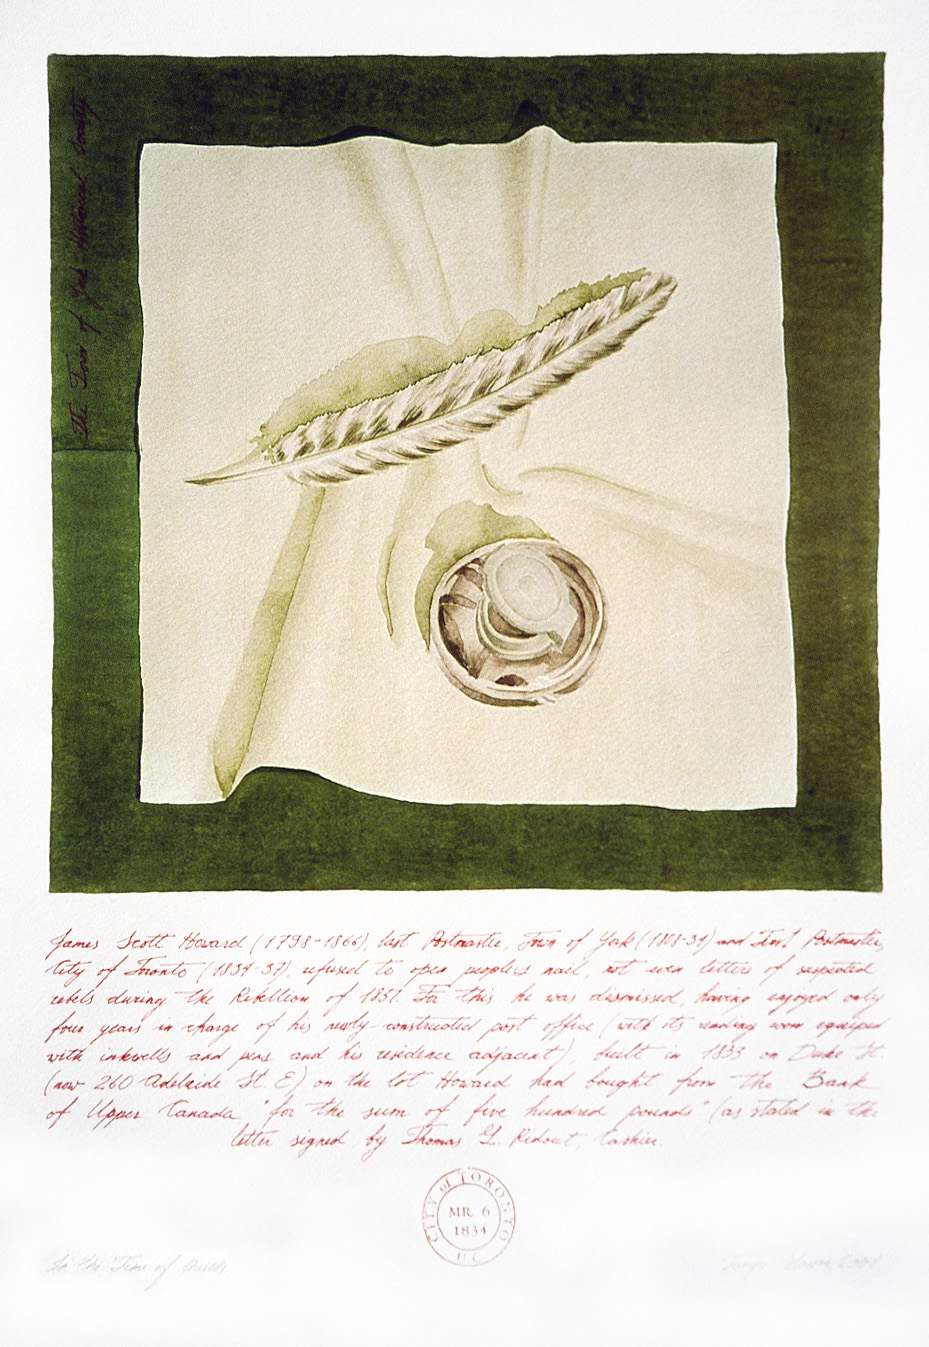 The Town of York Historical Society
James Scott Howard (1798-1866), last Postmaster, Town of York (1828-34) and First Postmaster,
City of Toronto (1834-37), refused to open people's mail, not even letters of suspected
rebels during the Rebellion of 1837. For this he was dismissed, having enjoyed only
four years in charge of his newly-constructed post office (with its reading room equiped
with inkwells and pens and his residence adjacent), built in 1833 on Duke St.
(now 260 Adelaide St. E) on the lot Howard had bought from the Bank
of Upper Canada "for the sum of five hundred pounds" (as stated in the
letter signed by Thomas G. Ridout, Cashier.
CITY of TORONTO
MR. 6
1834
U C
In the Time of Quills